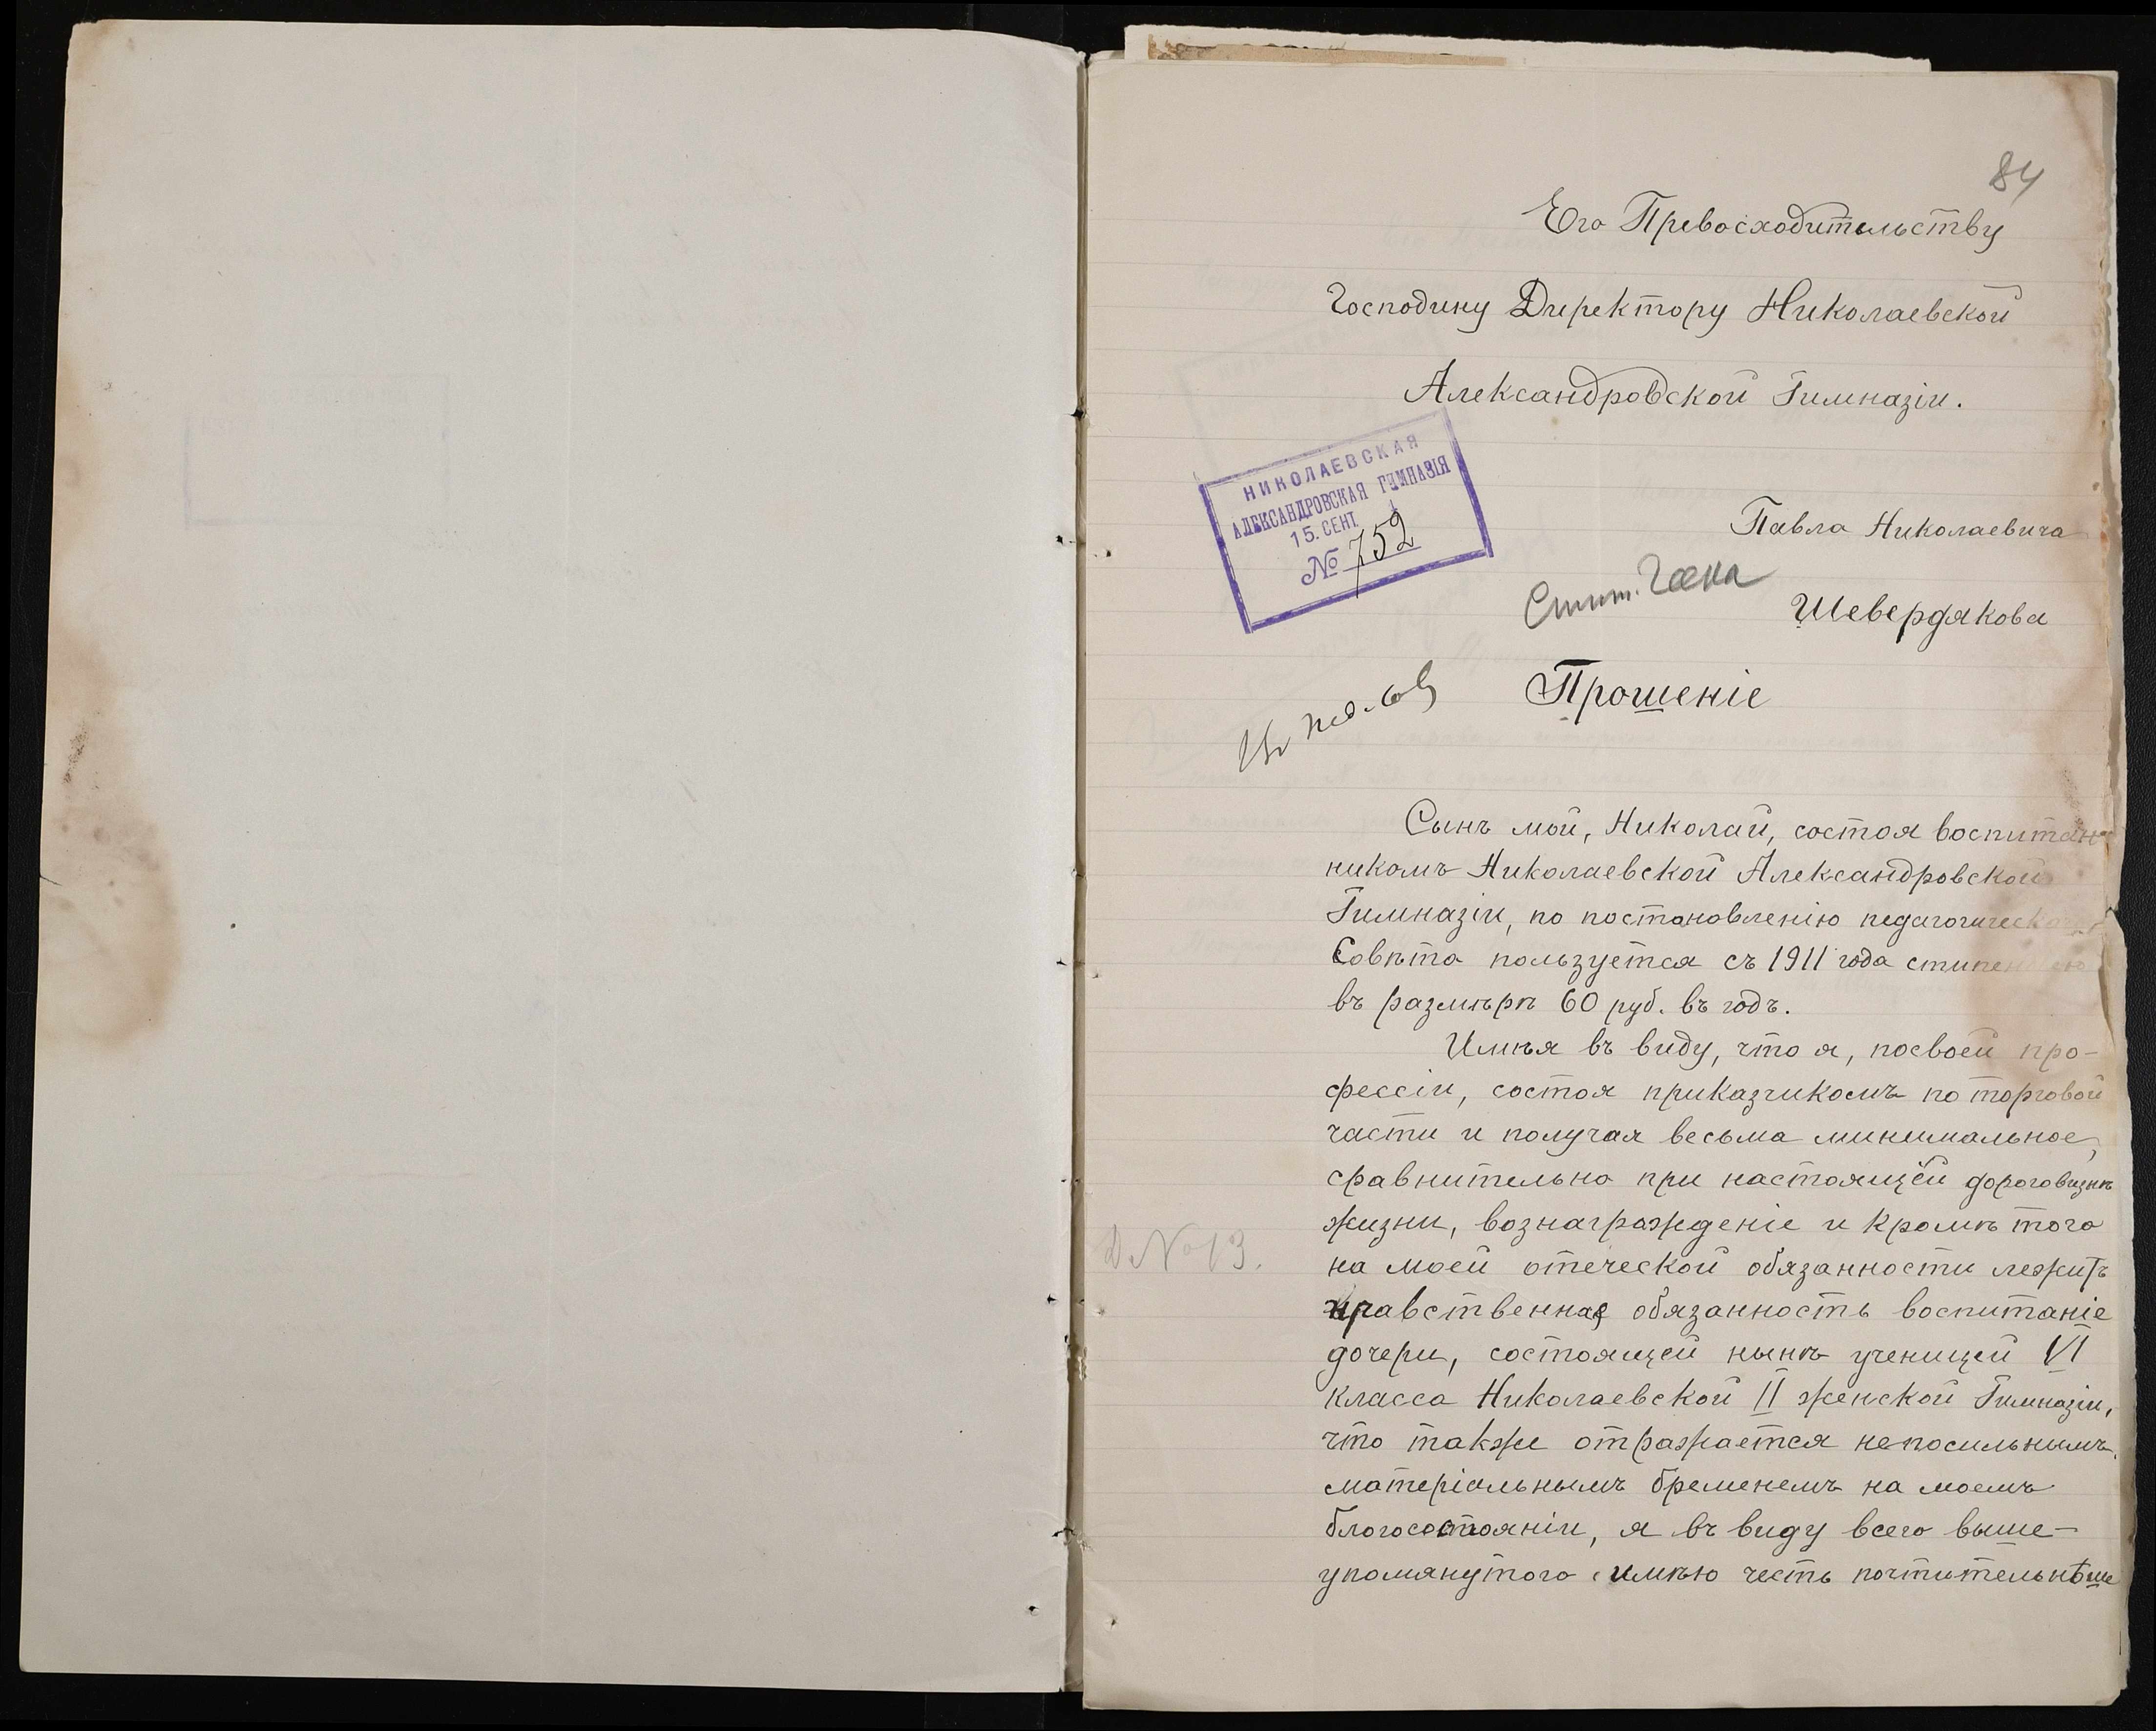 84
Его Превосходительству
Господину Директору Николаевской
Александровской Гимназіи.
НИКОЛАЕВСКАЯ
АЛЕКСАНДРОВСКАЯ ГИМНАЗІЯ
15. СЕНТ.
№ 752
Павла Николаевича
Стип.
Шевердякова
Прошеніе
Сынъ мой, Николай, состоя воспитан-
никомъ Николаевской Александровской
Гимназіи, по постановленію педагогическ
Совѣта пользуется съ 1911 года стипен
въ размѣрѣ 60 руб. въ годъ.
Имѣя въ виду, что я, посвоей про-
фессіи, состоя приказчикомъ по торговой
части и получая весьма минимальное,
сравнительно при настоящей дороговизнѣ
жизни, вознагражденіе и кромѣ того
на моей отеческой обязанности лежитъ
нравственная обязанность воспитаніе
дочери, состоящей нынѣ ученицей VI
класса Николаевской II женской Гимназіи,
что также отражается непосильнымъ
матеріальнымъ бременемъ на моемъ
благосостояніи, я въ виду всего выше-
упомянутого имѣю честь почтительнѣше
Д. № 13.